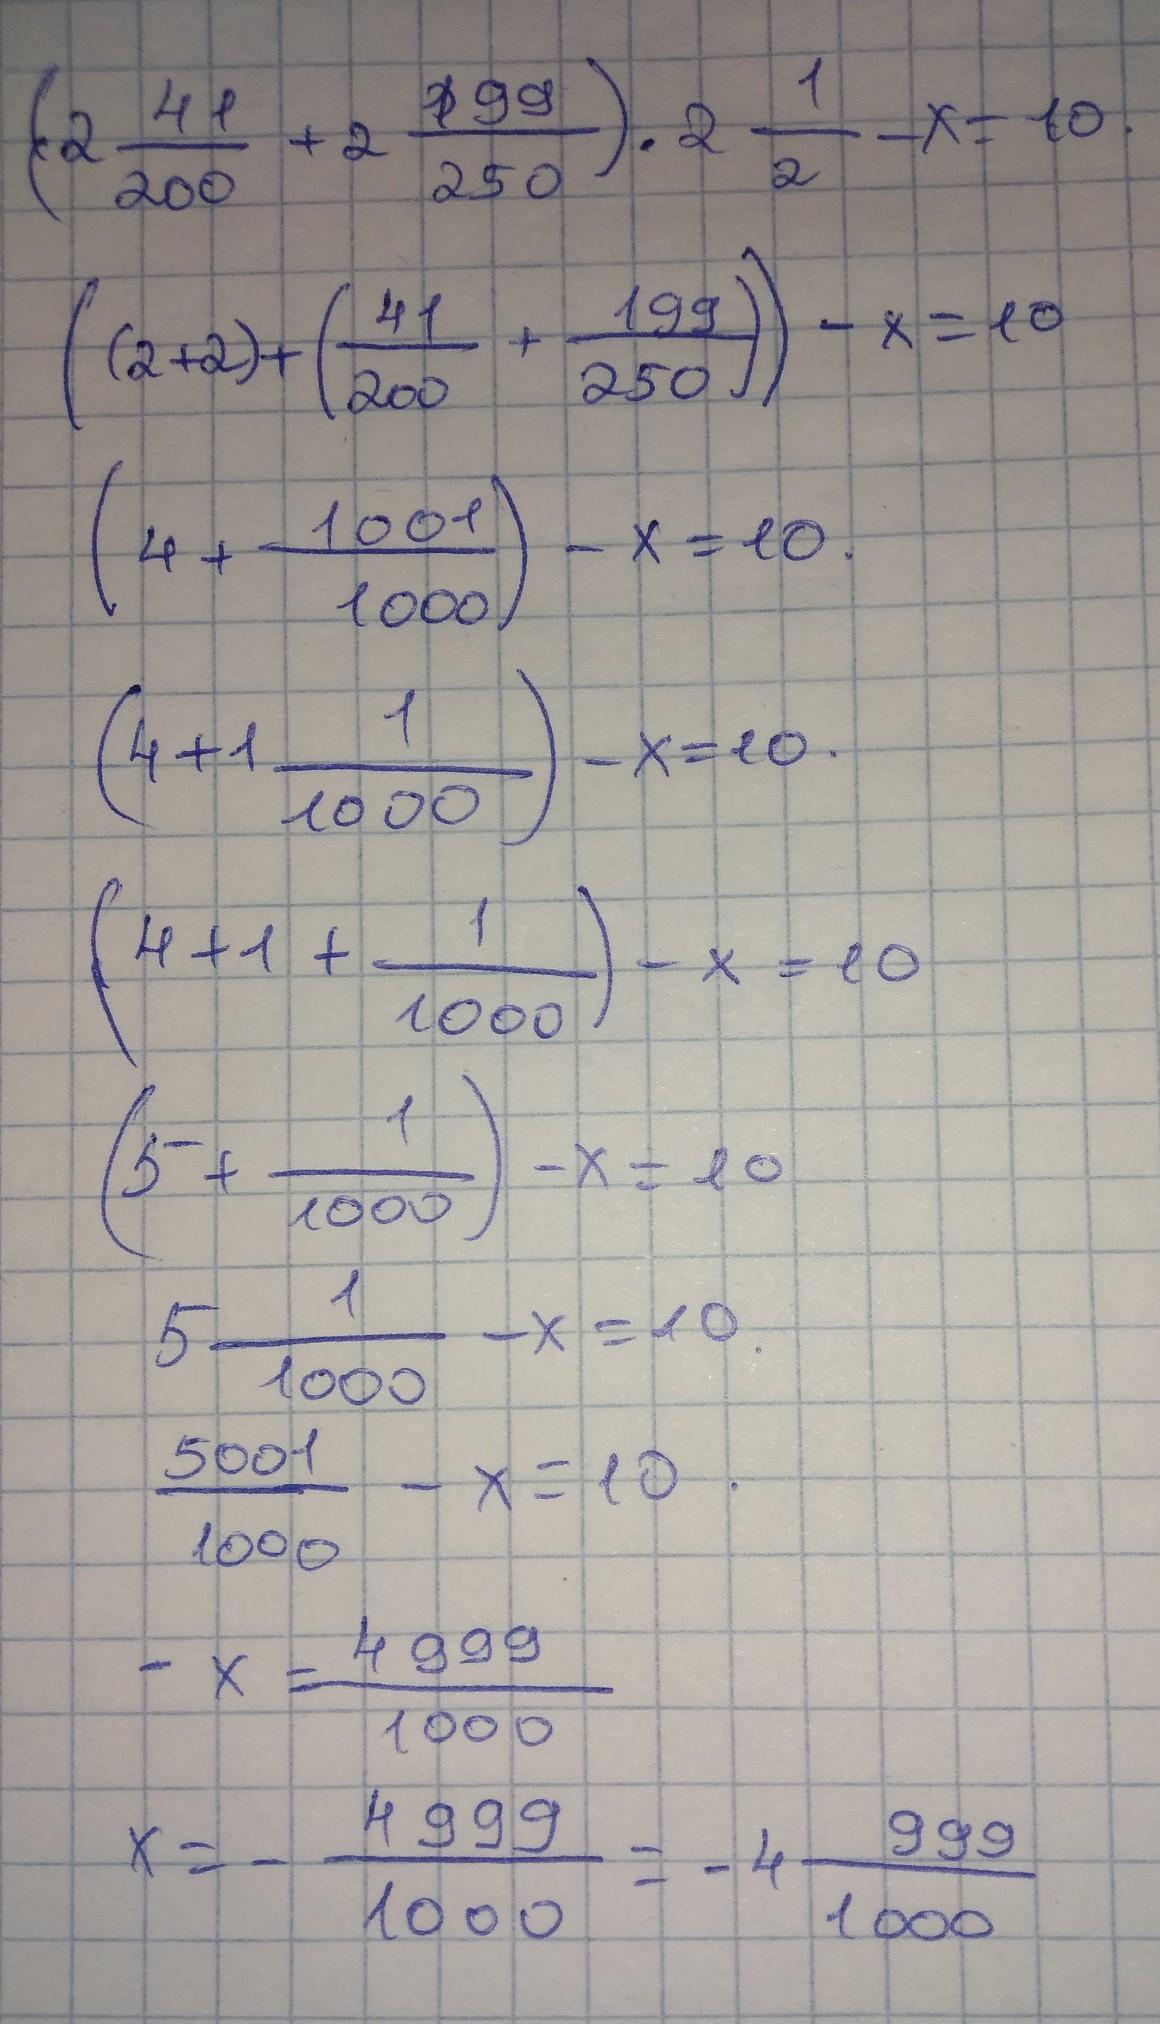 (2 41/200 + 2 199/250) · 2 1/2 - x = 10.
((2+2)+(41/200 + 199/250)) - x = 10
(4 + 1001/1000) - x = 10.
(4+1 1/1000) - x = 10.
(4+1 + 1/1000) - x = 10
(5 + 1/1000) - x = 10
5 1/1000 - x = 10.
5001/1000 - x = 10.
- x = 4999/1000
x = - 4999/1000 = - 4 999/1000